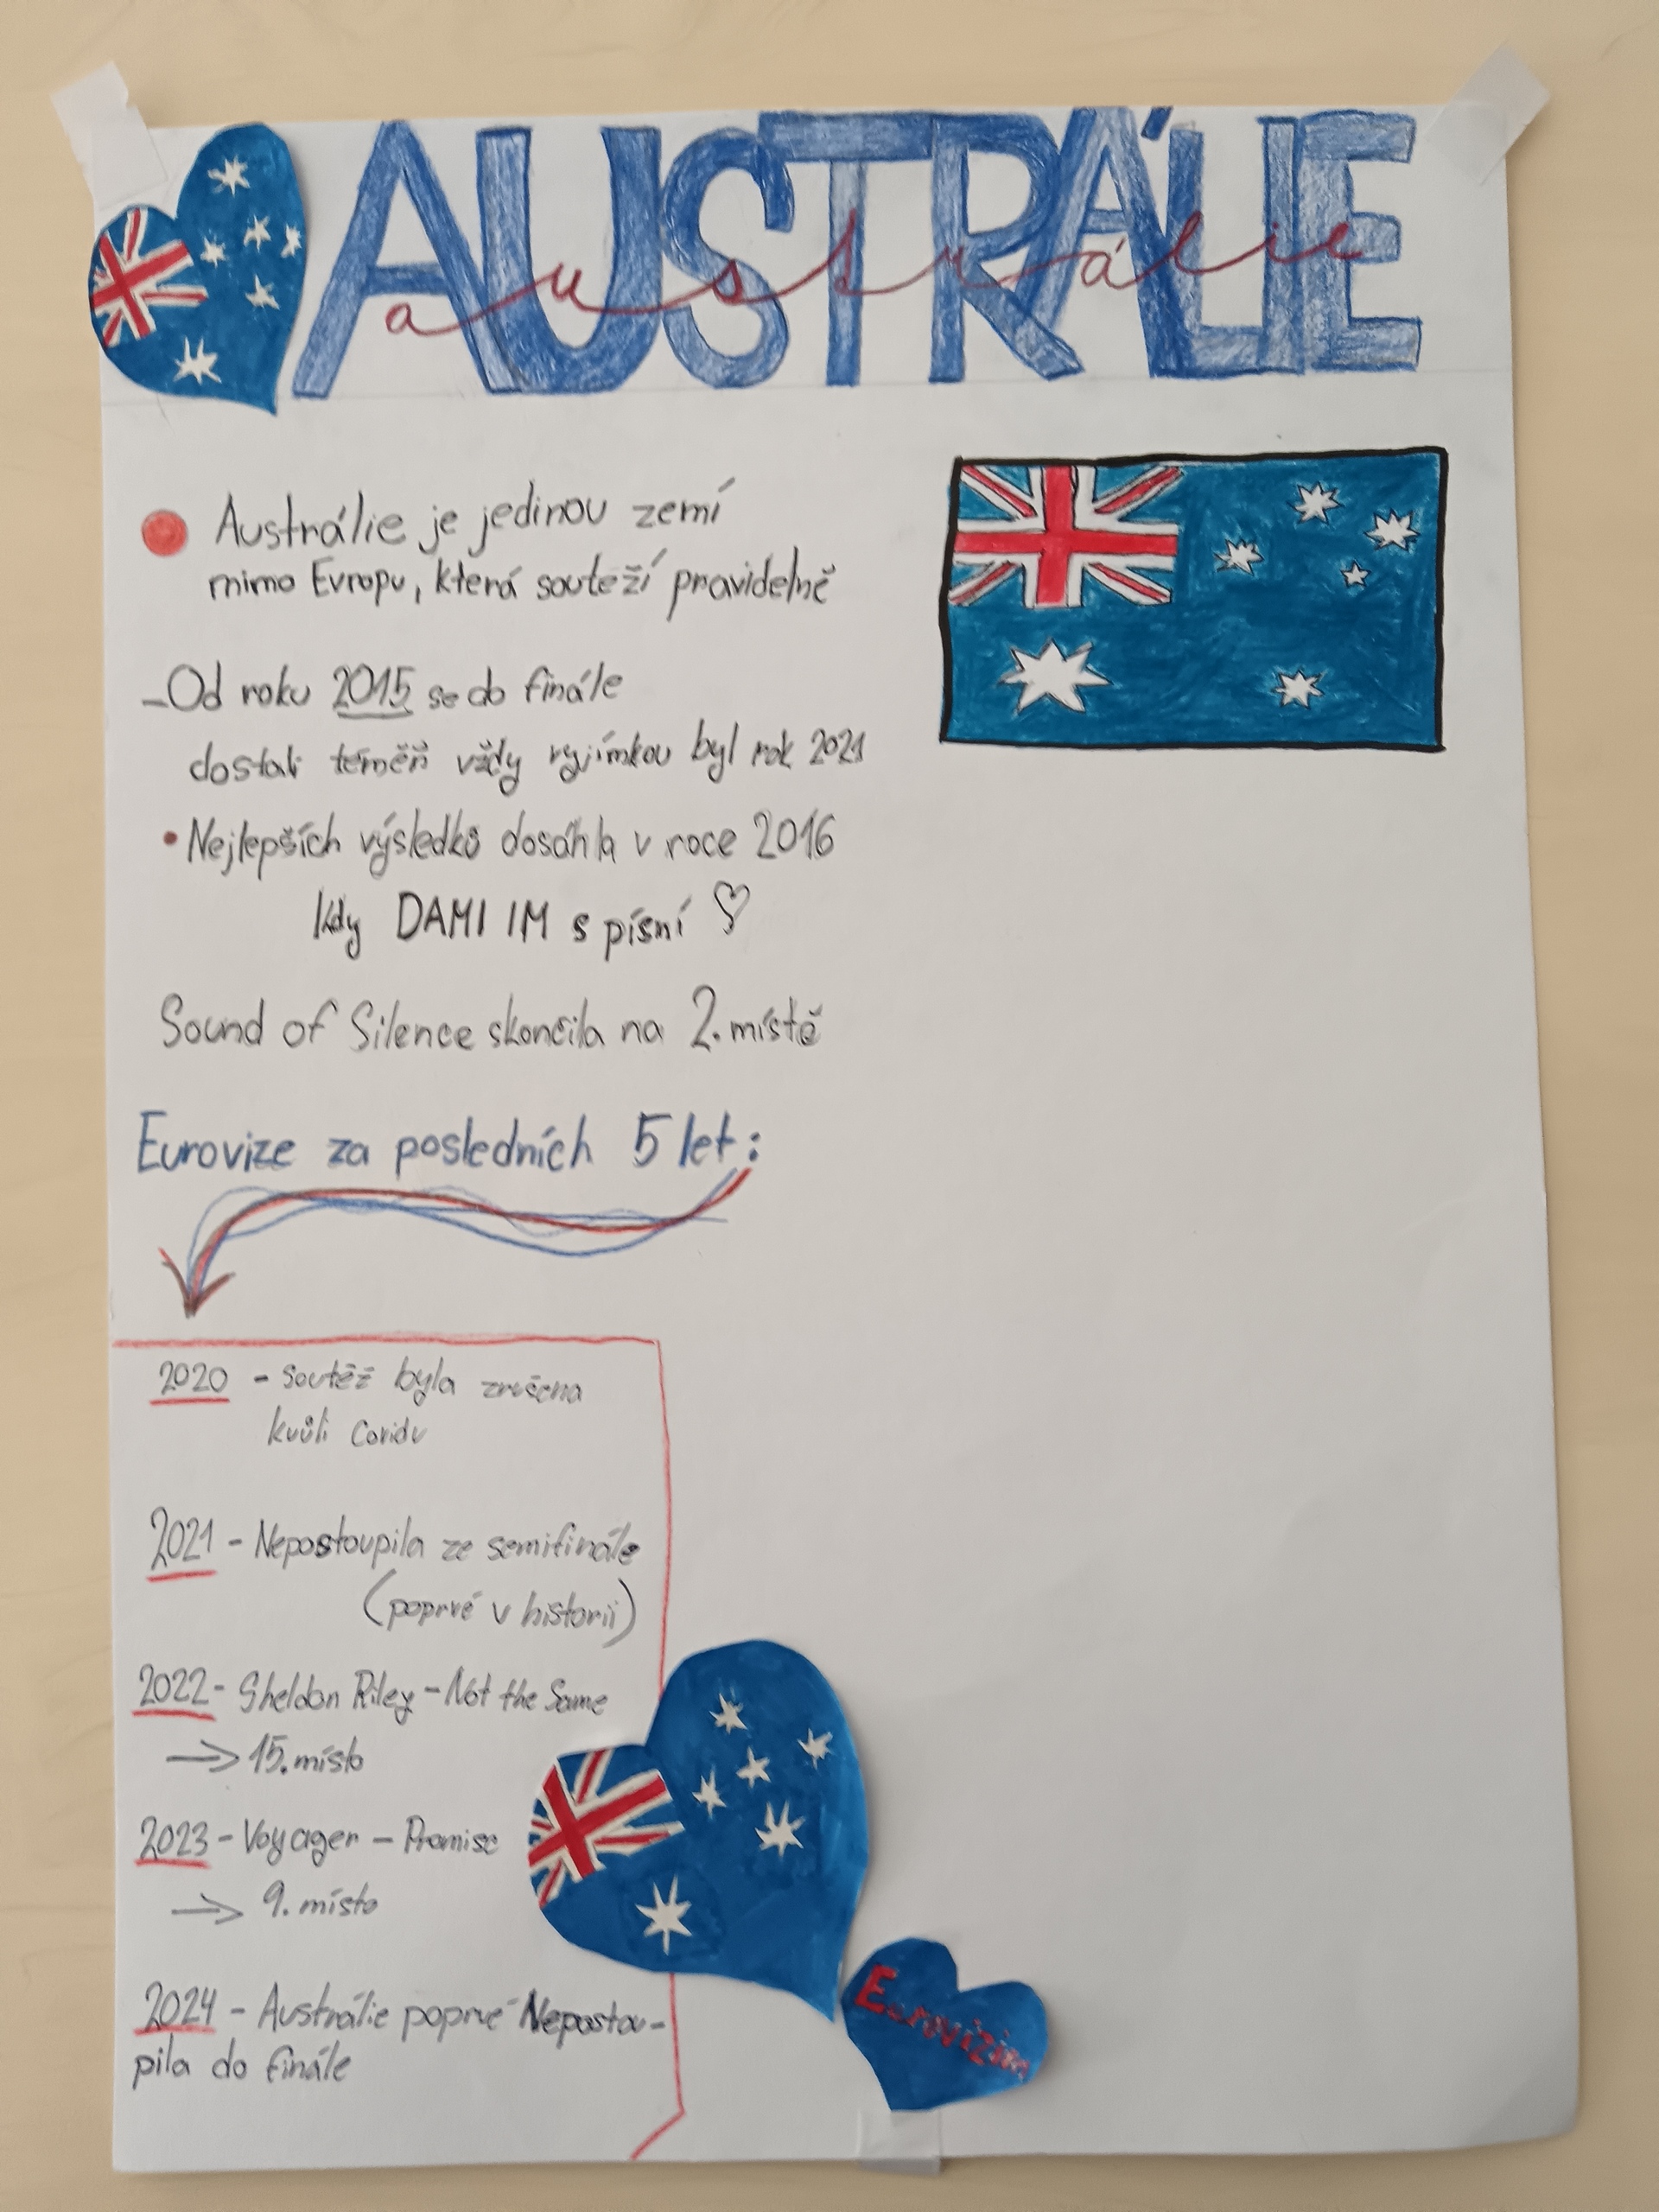 AUSTRÁLIE
austrálie
Austrálie je jedinou zemí
mimo Evropu, která soutěží pravidelně
-Od roku 2015 se do finále
dostali téměř vždy vyjímkou byl rok 2021
• Nejlepších výsledků dosáhla v roce 2016
kdy DAMI IM s písní ♡
Sound of Silence skončila na 2. místě
Eurovize za posledních 5 let:
2020 - soutěž byla zrušena
kvůli Covidu
2021 - Nepostoupila ze semifinále
(poprvé v historii)
2022 - Sheldon Riley - Not the Same
→ 15. místo
2023 - Voyager - Promise
→ 9. místo
2024 - Austrálie poprvé Nepostou-
pila do finále